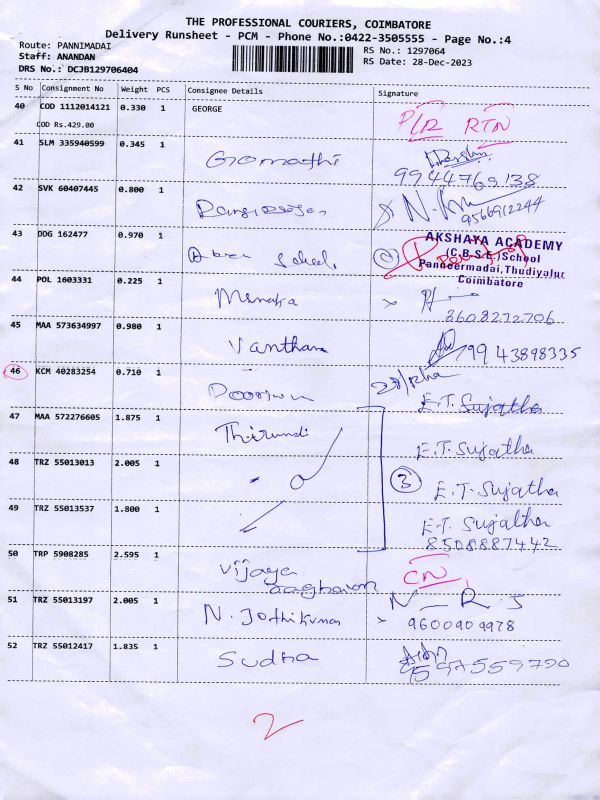 THE PROFESSIONAL COURIERS, COIMBATORE
Delivery Runsheet - PCM - Phone No.:0422-3505555 - Page No.:4
Route: PANNIMADAI RS No.: 1297064
Staff: ANANDAN RS Date: 28-Dec-2023
DRS No.: DCJB129706404
S No Consignment No Weight PCS Consignee Details Signature
40 COD 1112014121 0.330 1 GEORGE
COD Rs.429.00 RTN
41 SLM 335940599 0.345 1 Gomathi
9944769138
42 SVK 60407445 0.800 1
9566912244
43 DDG 162477 0.970 1 AKSHAYA ACADEMY
(C.B.S.E) School
Panneermadai, Thudiyalur
Coimbatore
44 POL 1603331 0.225 1 Menaka
3608272706
45 MAA 573634997 0.980 1 Vanthana 9943898335
46 KCM 40283254 0.710 1 E.T. Sujatha
47 MAA 572276605 1.875 1 E.T. Sujatha
48 TRZ 55013013 2.005 1 3 E.T. Sujatha
49 TRZ 55013537 1.800 1 E.T. Sujatha
8508887442
50 TRP 5908285 2.595 1 Vijaya CN
51 TRZ 55013197 2.005 1 N. Jothikumar
9600909978
52 TRZ 55012417 1.835 1 Sudha
9597559790
2